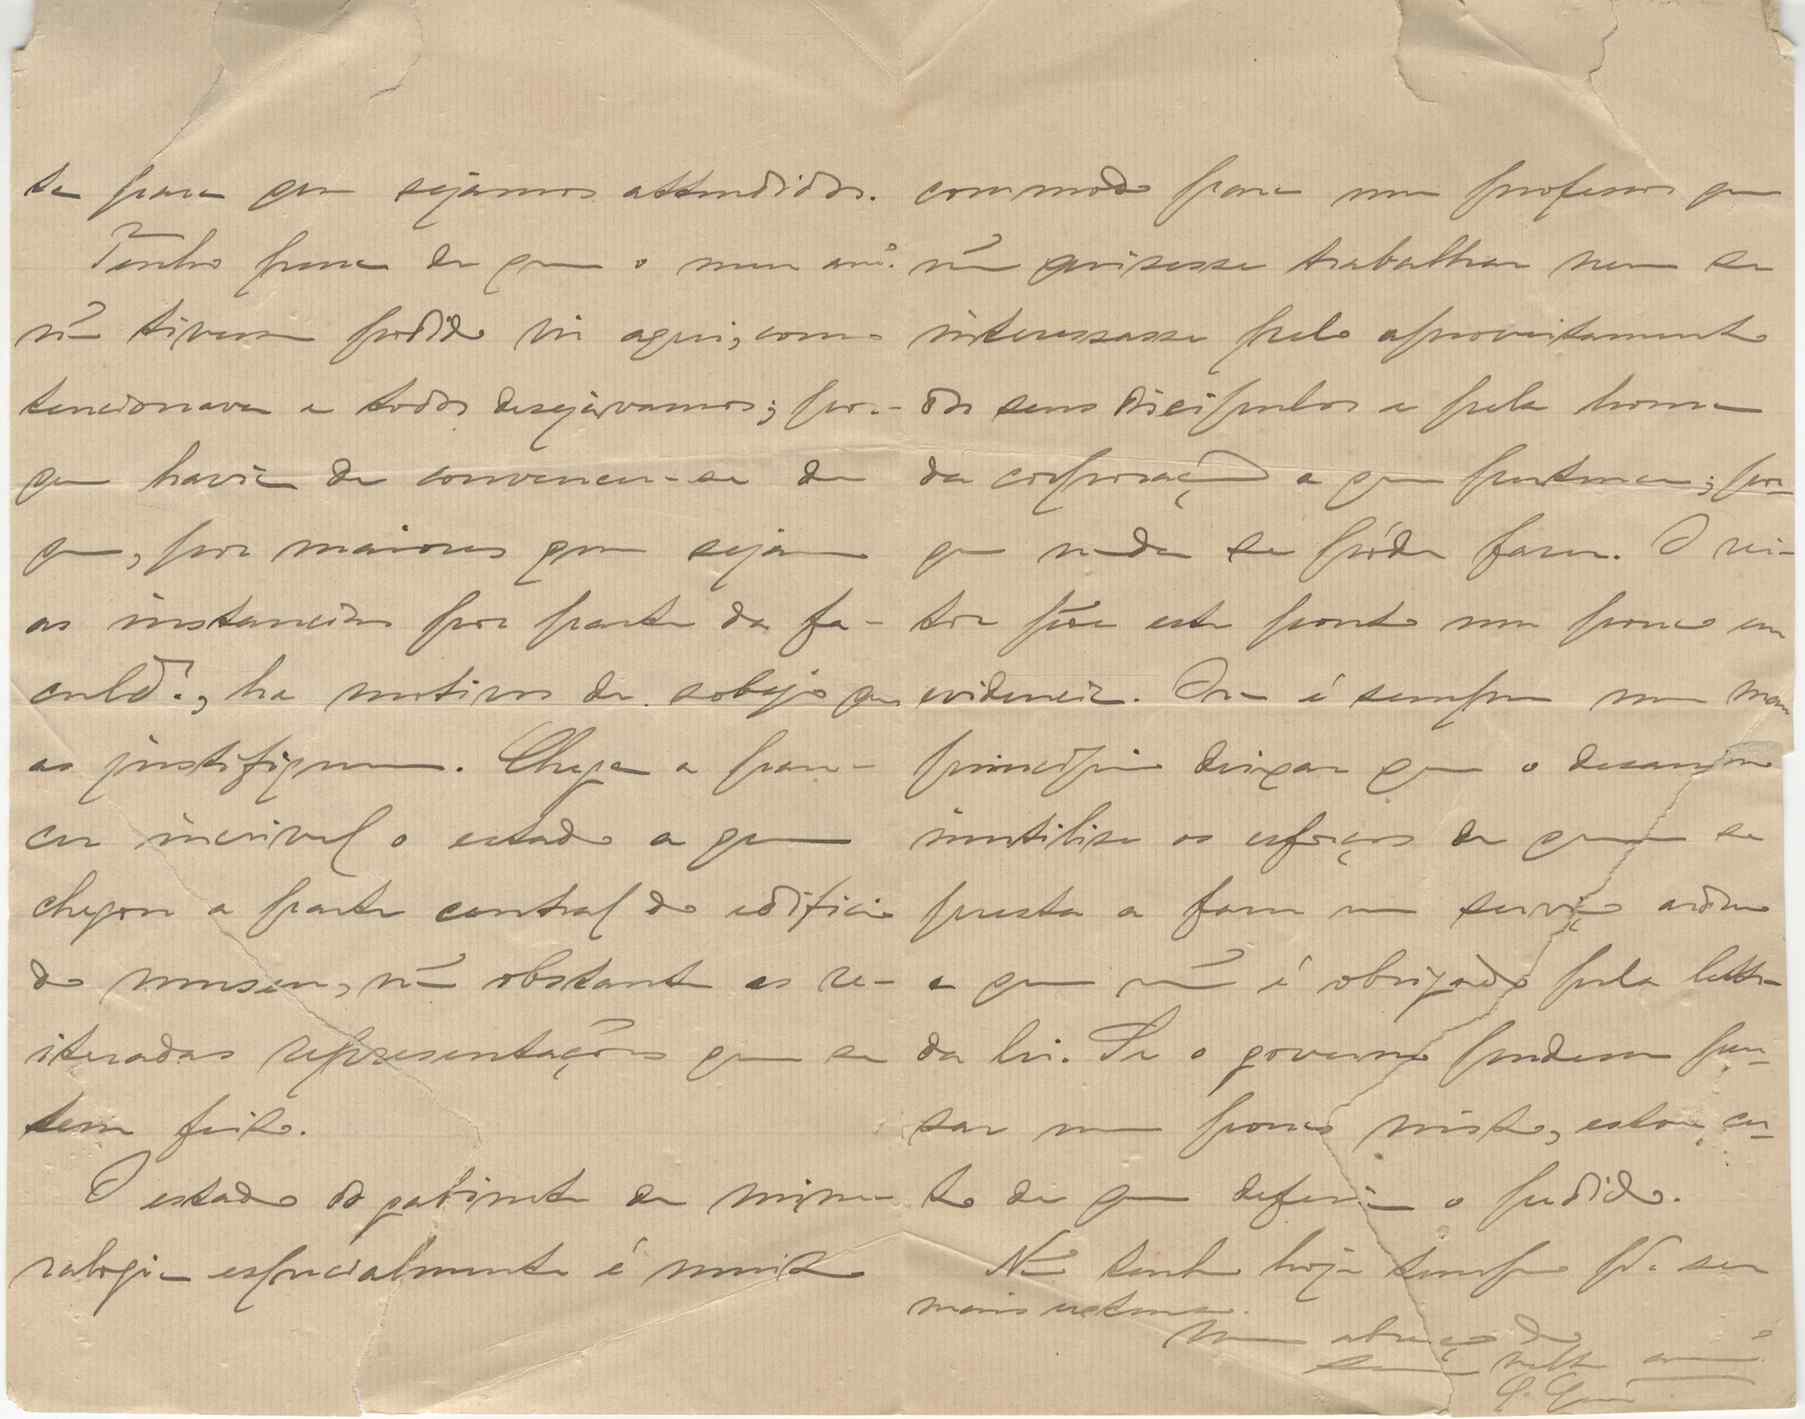 te para que sejamos attendidos.
Tenho pena de que o meu amº.
nã tivesse podido vir aqui, como
tencionava e todos desejavamos; por-
que havia de convencer-se de
que, por maiores que sejam
as instancias por parte da fa-
culde., ha motivos de sobejo que
as justifiquem. Chega a pare-
cer incrivel o estado a que
chegou a parte central do edificio
do museu, nã obstante as re-
iteradas representações que se
tem feito.
O estado do gabinete de mine-
ralogia especialmente é muito
commodo para um professor que
nã quisesse trabalhar nem se
interessasse pelo aproveitamento
dos seus discipulos e pela honra
da corporação a que pertence; por-
que nada se póde fazer. O rei-
tor põe este ponto um pouco em
evidencia. Ora é sempre um mau
principio deixar que o desanimo
inutilise os esforços de quem se
presta a fazer um serviço arduo
a que nã é obrigado pela lettra
da lei. Se o governo pudesse pen-
sar um pouco nisto, estou cer-
to de que deferia o pedido.
Nã tenho hoje tempo pa. ser
mais extenso.
Um abraço do
seu velho amº.